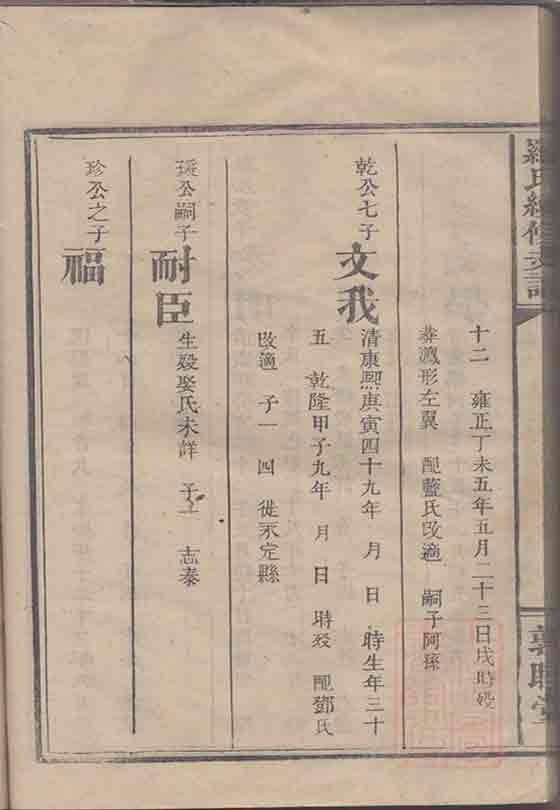 羅氏續修支譜
敦睦堂
十二 雍正丁未五年五月二十三日戌時歿
葬鳳形左翼 配藍氏改適 嗣子阿孫
乾公七子
文我
清康熙庚寅四十九年 月 日 時生年三十
五 乾隆甲子九年 月 日 時歿 配鄧氏
改適 子一 四 徙永定縣
公嗣子
耐臣
生歿娶氏未詳 子一 志泰
珍公之子
福